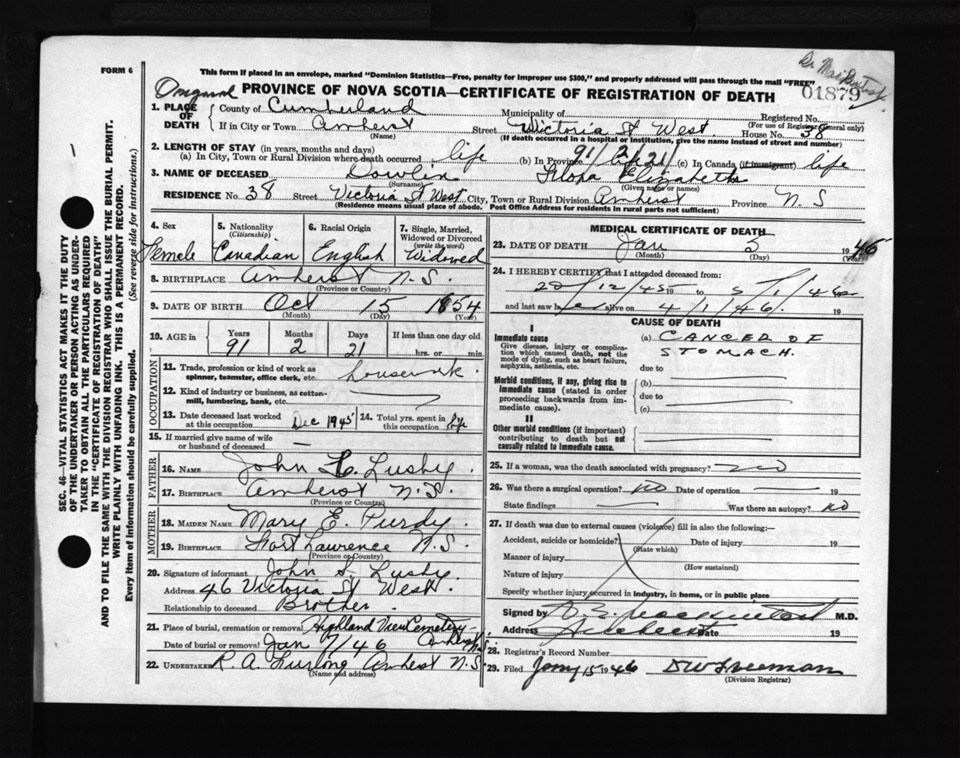 FORM 6
This form if placed in an envelope, marked "Dominion Statistics—Free, penalty for improper use $300," and properly addressed will pass through the mail "FREE"
01879
Original PROVINCE OF NOVA SCOTIA—CERTIFICATE OF REGISTRATION OF DEATH
1. PLACE OF DEATH County of Cumberland Municipality of Registered No.
(For use of Registrar General only)
If in City or Town Amherst Street Victoria St West. House No. 38
(Name) (If death occurred in a hospital or institution, give the name instead of street and number)
2. LENGTH OF STAY (in years, months and days)
(a) In City, Town or Rural Division where death occurred life (b) In Province 91/2/21 life (c) In Canada (if immigrant) life
3. NAME OF DECEASED Dowlin Elizabeth
(Surname) (Given name or names)
RESIDENCE No. 38 Street Victoria St West City, Town or Rural Division Amherst Province N S
(Residence means usual place of abode. Post Office Address for residents in rural parts not sufficient)
4. Sex 5. Nationality (Citizenship) 6. Racial Origin 7. Single, Married, Widowed or Divorced (write the word)
Female Canadian English Widowed
8. BIRTHPLACE Amherst N.S.
(Province or Country)
9. DATE OF BIRTH Oct 15 1854
(Month) (Day) (Year)
10. AGE in Years Months Days If less than one day old
91 2 21 hrs. or min.
OCCUPATION
11. Trade, profession or kind of work as spinner, teamster, office clerk, etc. housework
12. Kind of industry or business, as cotton-mill, lumbering, bank, etc.
13. Date deceased last worked at this occupation Dec 1945 14. Total yrs. spent in this occupation life
15. If married give name of wife or husband of deceased —
FATHER
16. NAME John L. Lusby.
17. BIRTHPLACE Amherst N.S.
(Province or Country)
MOTHER
18. MAIDEN NAME Mary E. Purdy.
19. BIRTHPLACE Fort Lawrence N.S.
(Province or Country)
20. Signature of informant John S. Lusby.
Address 46 Victoria St West.
Relationship to deceased Brother.
21. Place of burial, cremation or removal Highland View Cemetery Amherst N.S.
Date of burial or removal Jan 7/46
22. UNDERTAKER R A Furlong Amherst N.S.
(Name and address)
MEDICAL CERTIFICATE OF DEATH
23. DATE OF DEATH Jan 5 1946
(Month) (Day) (Year)
24. I HEREBY CERTIFY that I attended deceased from:
28/12/45 19 to 5/1/46 19
and last saw h er alive on 4/1/46. 19
CAUSE OF DEATH
I
Immediate cause
Give disease, injury or complication which caused death, not the mode of dying, such as heart failure, asphyxia, asthenia, etc.
(a) CANCER OF STOMACH.
due to
Morbid conditions, if any, giving rise to immediate cause (stated in order proceeding backwards from immediate cause).
(b)
due to
(c)
II
Other morbid conditions (if important) contributing to death but not causally related to immediate cause.
25. If a woman, was the death associated with pregnancy? no
26. Was there a surgical operation? NO Date of operation — 19
State findings — Was there an autopsy? NO
27. If death was due to external causes (violence) fill in also the following:—
Accident, suicide or homicide? Date of injury 19
(State which)
Manner of injury
(How sustained)
Nature of injury
Specify whether injury occurred in industry, in home, or in public place
Signed by M.D.
Address Amherst Date 19
28. Registrar's Record Number
29. Filed Jany 15 1946 D W Freeman
(Division Registrar)
SEC. 46—VITAL STATISTICS ACT MAKES IT THE DUTY
OF THE UNDERTAKER OR PERSON ACTING AS UNDER-
TAKER TO OBTAIN ALL THE PARTICULARS REQUIRED
IN THE "CERTIFICATE OF REGISTRATION OF DEATH"
AND TO FILE THE SAME WITH THE DIVISION REGISTRAR WHO SHALL ISSUE THE BURIAL PERMIT.
WRITE PLAINLY WITH UNFADING INK. THIS IS A PERMANENT RECORD.
Every item of information should be carefully supplied. (See reverse side for instructions.)